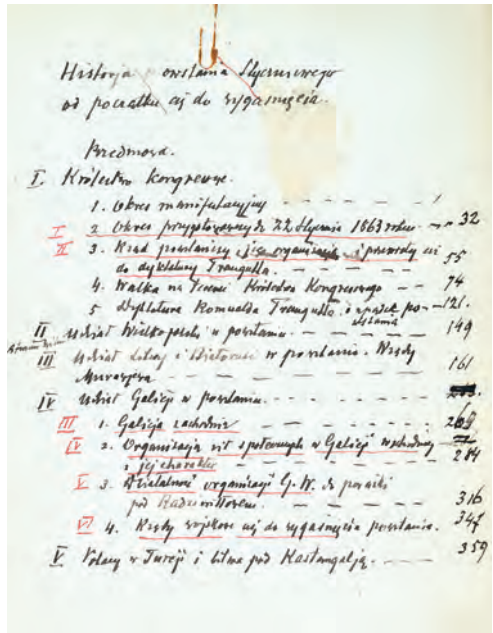 Historja powstania Styczniowego
od początku aż do wygaśnięcia.
Przedmowa.
I. Królestwo Kongresowe.
1. Okres manifestacyjny - - - - - 1
I 2. Okres przygotowawczy do 22 stycznia 1863 roku. - " 32
II 3. Rząd powstańczy, jego organizacja i przewroty aż 55
do dyktatury Traugutta. - - - -
4. Walka na terenie Królestwa Kongresowego - - 74
5 Dyktatura Romualda Traugutta i upadek po- 121.
wstania
II Udział Wielkopolski w powstaniu. - - - 149
III Udział Litwy i Białorusi w powstaniu. Rządy 161
Murawjewa - - - - - -
IV Udział Galicji w powstaniu. - - - -
III 1. Galicja zachodnia - - - - -
IV 2. Organizacja sił społecznych w Galicji wschodniej
i jej charakter - - - - - 284
V 3. Działalność organizacji G. W. do porażki
pod Radziwiłłowem. - - - - 316
VI 4. Rządy wojskowe aż do wygaśnięcia powstania. 347
V Polacy w Turcji i bitwa pod Kastangalją. - - - 359